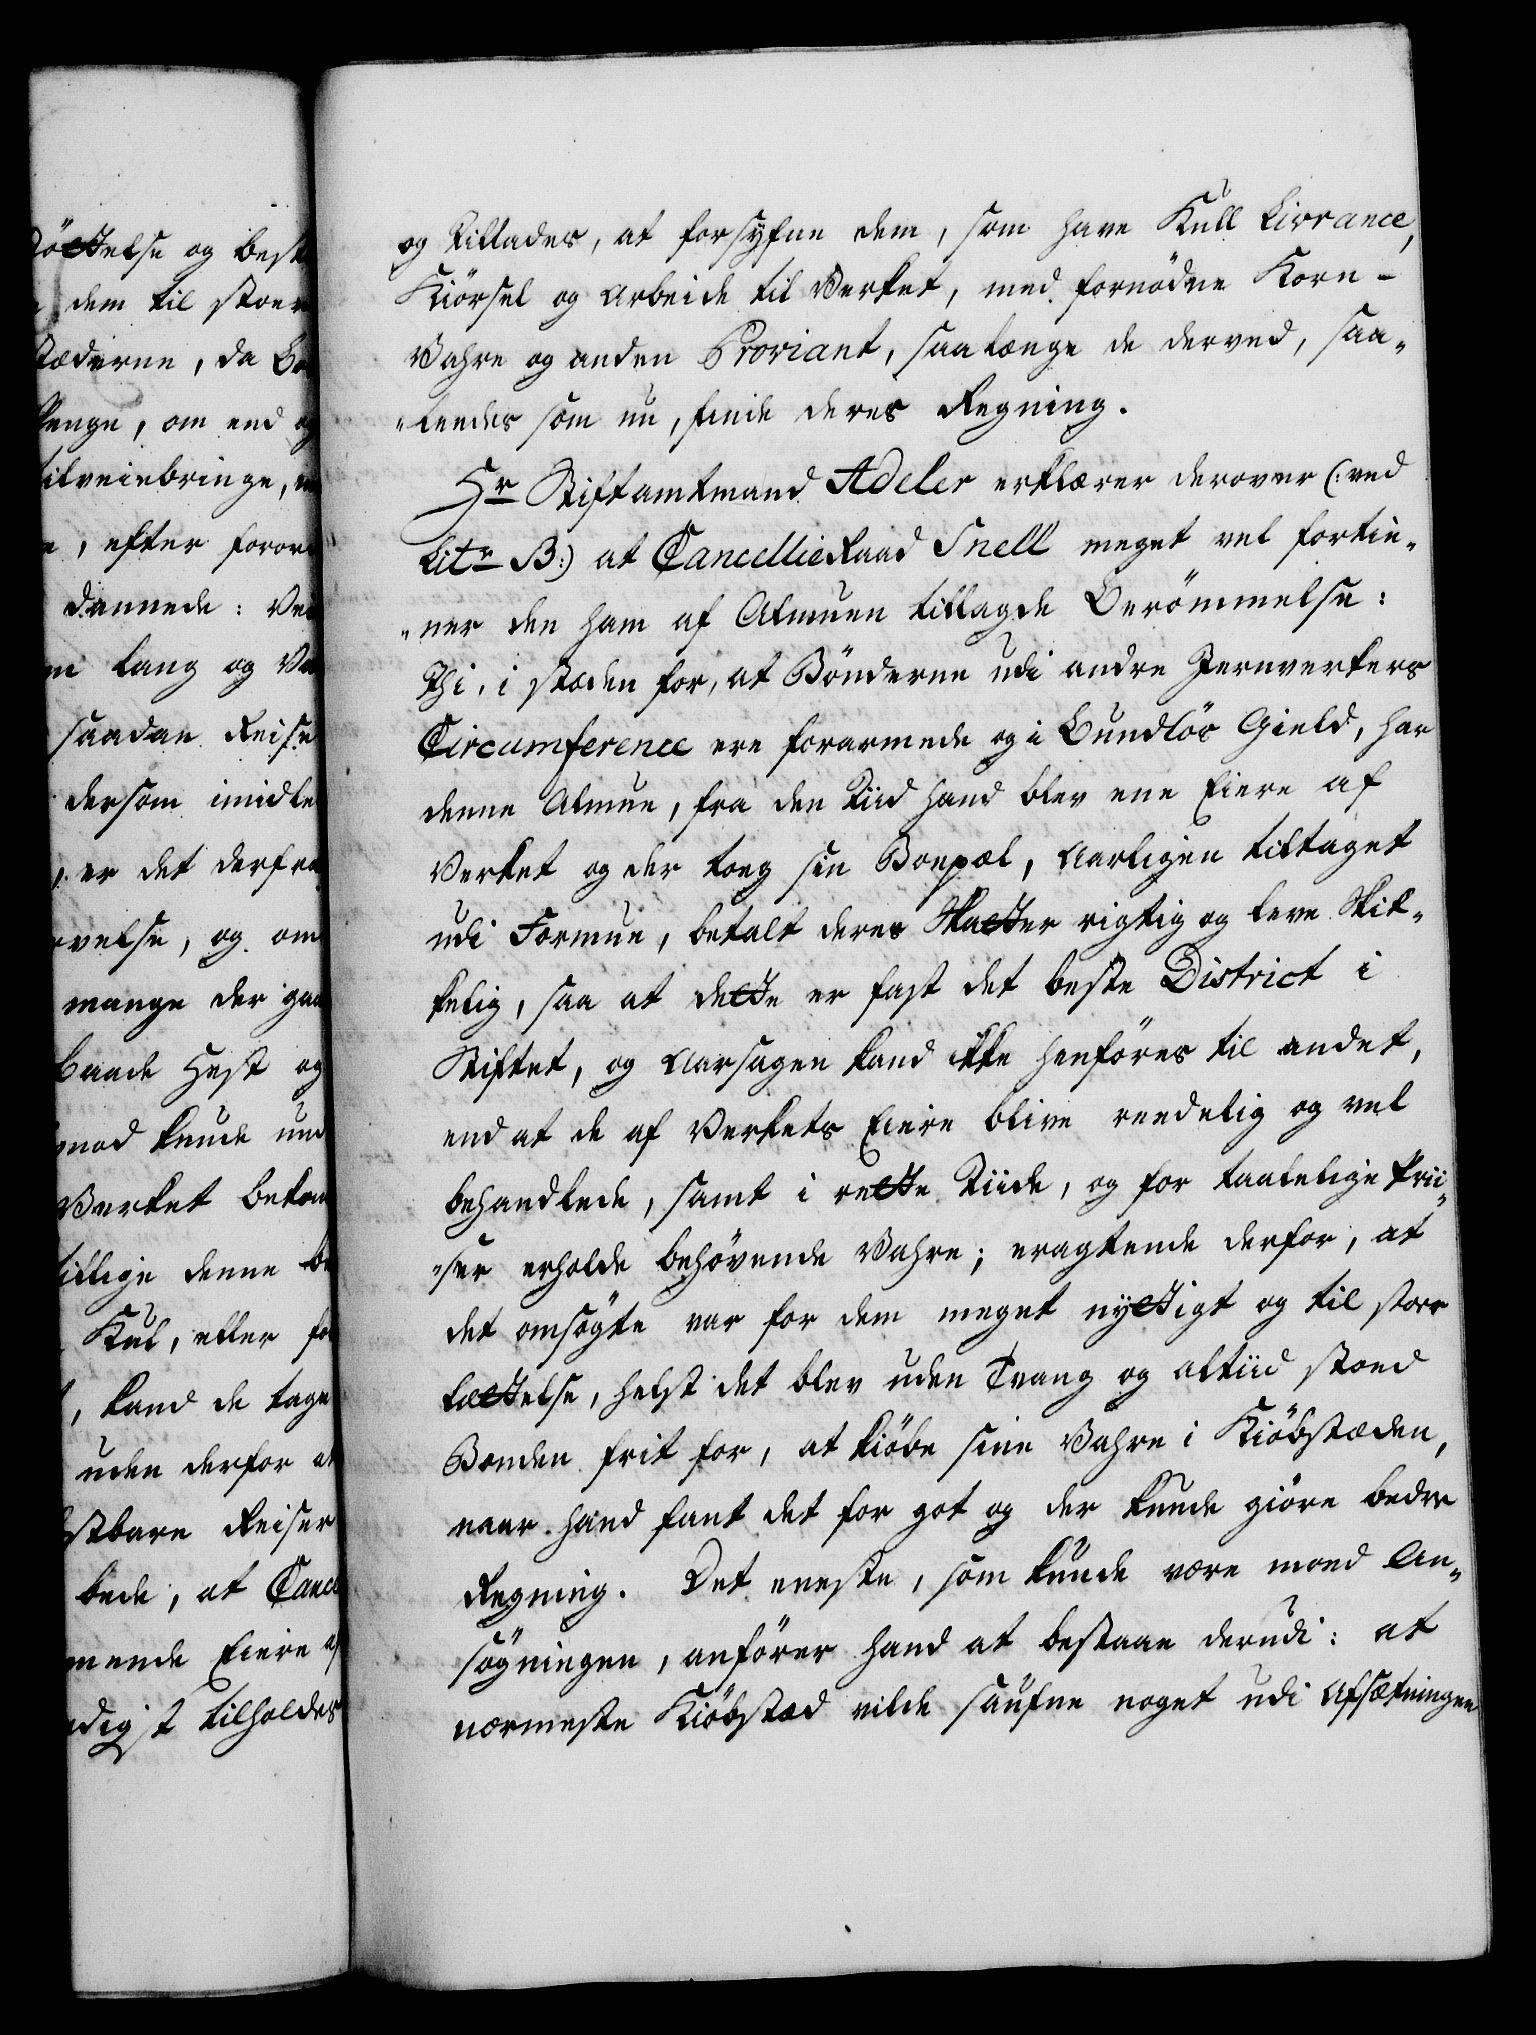 döttelse og best
dem til stoer
stæderne, da Bo
Penge, om end og
tilveiebringe,
, efter foror
dannede: Vei
lang og Va
saadan Reise
dersom imidle
er det derfra
velse, og om
mange der gaa
baade Hest og
mod kunde und
Verket bekom
tillige denne be
Kul, eller for
, kand de tage
uden derfor at
stbare Reiser
bede, at Cancel
mende Eiere af
digst tilholdes
og tillades, at forsyfne dem, som have Kull Livrance,
Kiörsel og Arbeide til Verket, med fornödne Korn-
Vahre og anden Proviant, saa længe de derved, saa„
„ledes som nu, finde deres Regning.
Hr Stiftamtmand Adeler erklærer derover (: ved
Litr B:) at CancellieRaad Snell meget vel fortie„
„ner den ham af Almuen tillagde Berömmelse:
Thi, i stæden for, at Bönderne udi andre Jernverkers
Circumference ere forarmede og i Bundlös Gield, har
denne Almue, fra den Tiid hand blev ene Eiere af
Verket og der toeg sin Boepæl, Aarligen tiltaget
udi Formue, betalt deres Skatter rigtig og leve Skik„
kelig, saa at dette er fast det beste District i
Stiftet, og Aarsagen kand ikke henföres til andet,
end at de af Verkets Eiere blive reedelig og vel
behandlede, samt i rette Tiide, og for taalelige Prii„
„ser erholde behövende Vahre; eragtende derfor, at
det omsögte var for dem meget nyttigt og til stor
Lættelse, helst det blev uden Tvang og altiid stoed
Bonden frit for, at kiöbe sine Vahre i Kiöbstæden,
naar hand fant det for got og der kunde giöre bedre
Regning. Det eneste, som kunde være moed An„
sögningen, anförer hand at bestaae derudi: at
nærmeste Kiöbstæd vilde saufne noget udi Afsætningen